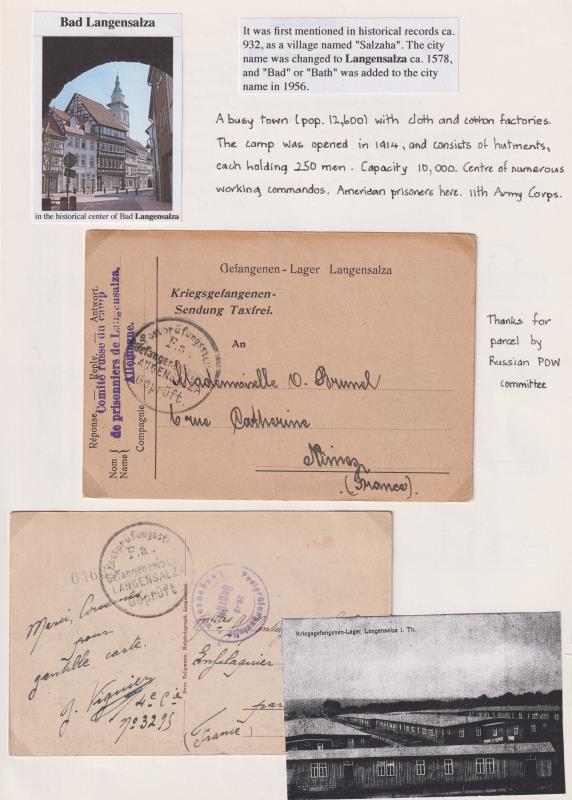 Bad Langensalza
in the historical center of Bad Langensalza
It was first mentioned in historical records ca.
932, as a village named "Salzaha". The city
name was changed to Langensalza ca. 1578,
and "Bad" or "Bath" was added to the city
name in 1956.
A busy town (pop. 12,600) with cloth and cotton factories.
The camp was opened in 1914, and consists of hutments,
each holding 250 men. Capacity 10,000. Centre of numerous
working commandos. American prisoners here. 11th Army Corps.
Gefangenen-Lager Langensalza
Kriegsgefangenen-
Sendung Taxfrei.
An
Mademoiselle O. Brunel
6 rue Catherine
Nimes
(France)
Réponse. — Reply. — Antwort.
Comité russe du camp
de prisonniers de Langensalza,
Allemagne.
Nom
Name
Compagnie
Postprüfungsst.
F.a.
Gefangenenlag
LANGENSALZA
Geprüft
Thanks for
parcel by
Russian POW
committee
Postprüfungsst.
F.a.
Gefangenenlag
LANGENSALZA
Geprüft
Merci,
pour
gentille carte.
J. Viguier
4e Cie
No 3295
(France)
Kriegsgefangenen-Lager Langensalza i. Th.